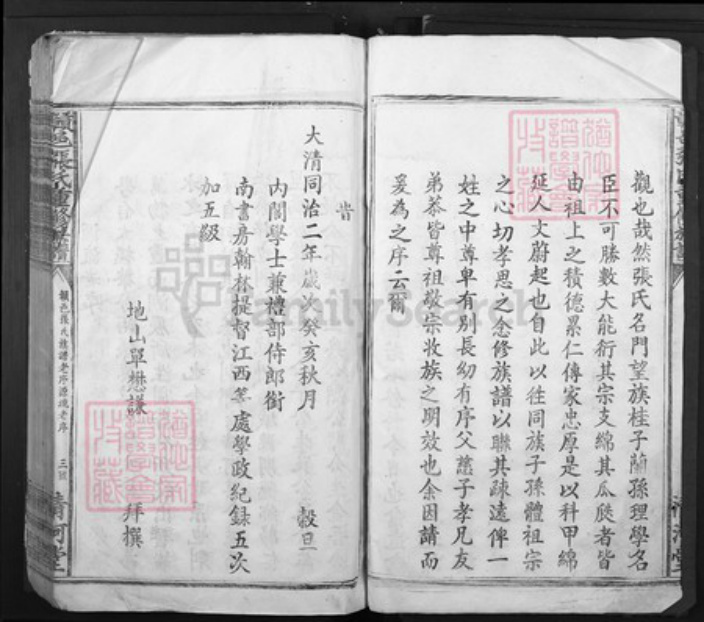 觀也哉然張氏名門望族桂子蘭孫理學名
臣不可勝數大能衍其宗支綿其瓜瓞者皆
由祖上之積德累仁傳家忠厚是以科甲綿
延人文蔚起也自此以往同族子孫體祖宗
之心切孝思之念修族譜以聯其疎遠俾一
姓之中尊卑有別長幼有序父慈子孝兄友
弟恭皆尊祖敬宗收族之明效也余因請而
爰為之序云爾
旹
大清同治二年歲次癸亥秋月 穀旦
內閣學士兼禮部侍郎銜
南書房翰林提督江西等處學政紀錄五次
加五級
地山單懋謙 拜撰
張氏重修族譜
族譜老序源流老序
三
清河堂
FamilySearch